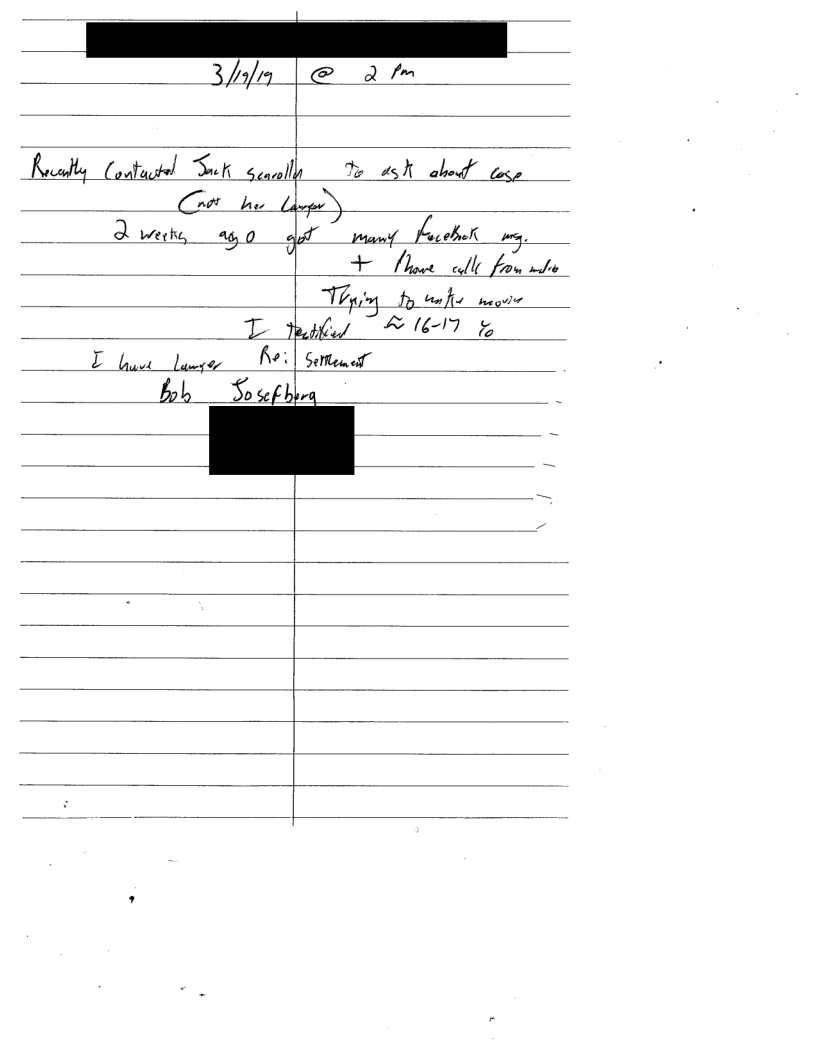 3/19/19 @ 2 Pm
Recently Contacted Jack Scarolla to ask about case
(not her lawyer)
2 weeks ago got many FaceBook msg.
+ Phone calls from media
Trying to make movies
I testified ≈ 16-17 yo
I have lawyer Re: Settlement
Bob Josefberg